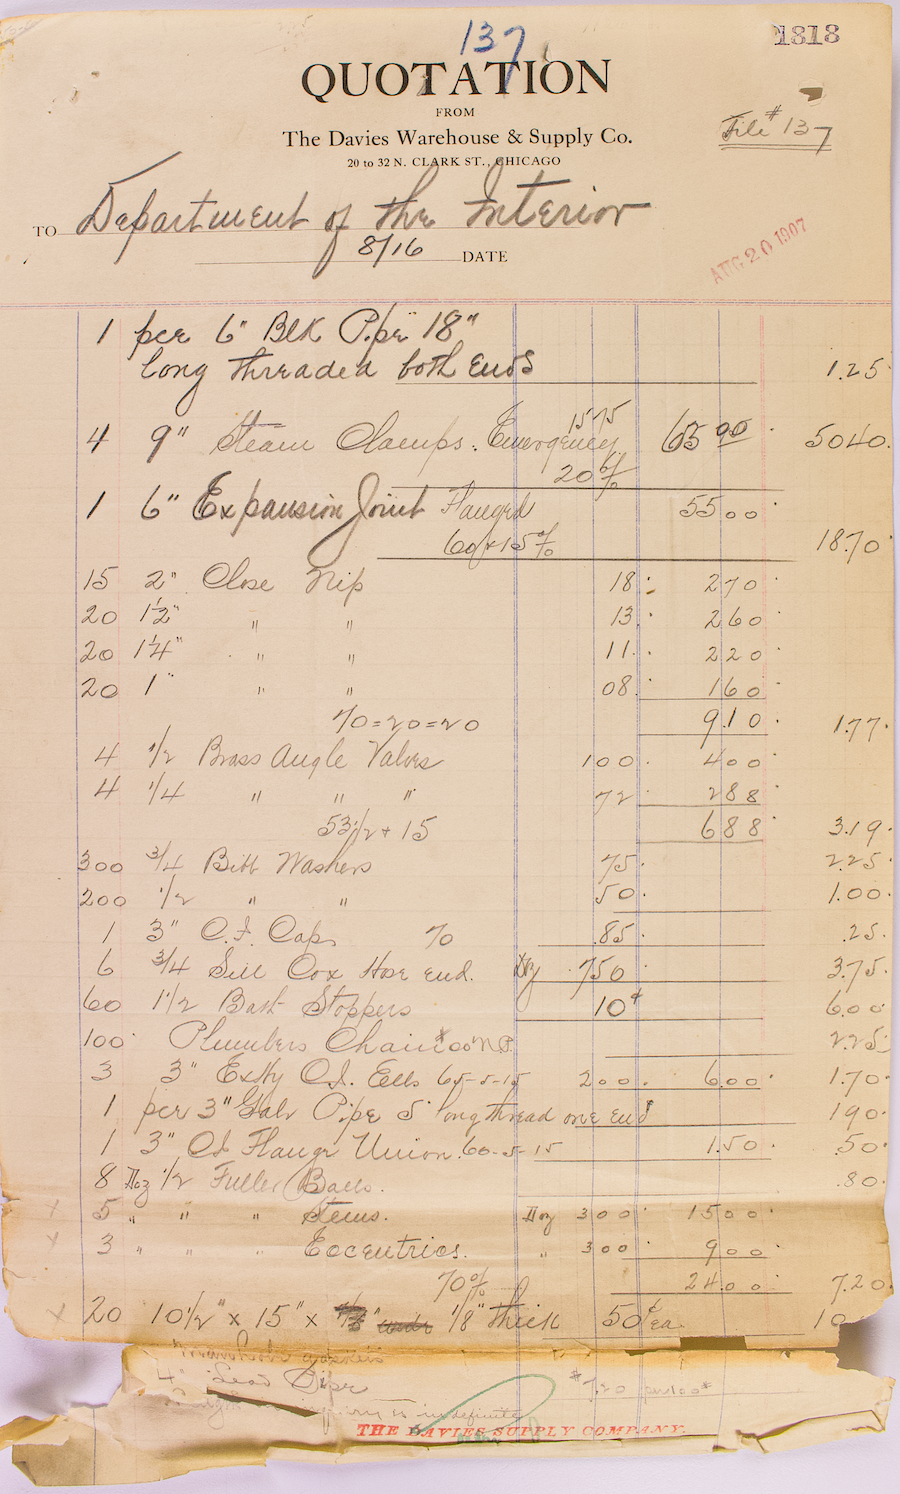 137
1318
QUOTATION
FROM
The Davies Warehouse & Supply Co.
20 to 32 N. CLARK ST., CHICAGO
File # 137
TO Department of the Interior
8/16 DATE
AUG 20 1907
1 pce 6" Blk Pipe 18"
long threaded both Ends 1.25
4 9" Steam Clamps. Emergency 15 75 63 00 5040
20%
1 6" Expansion Joint Flanged 55 00
60 + 15% 18.70
15 2" Close Nip 18 2 70
20 1 1/2" " " 13 2 60
20 1 1/4" " " 11 2 20
20 1" " " 08 1 60
70=20=20 9 10 1.77
4 1/2 Brass Angle Valves 1 00 4 00
4 1/4 " " " 72 2 88
53 1/2 + 15 6 88 3.19
300 3/4 Bibb Washers 75 2.25
200 1/2 " " 50 1.00
1 3" C.I. Cap 70 .85 .25
6 3/4 Sill Cox Hose End. Doz 7 50 3.75
60 1 1/2 Bast Stoppers 10¢ 6.00
100 Plumbers Chain #00 N.P. 2.25
3 3" Ex Hy C.I. Ells 65-5-15 2 00 6 00 1.70
1 pce 3" Galv Pipe 5' long thread one end 1 90
1 3" C.I. Flange Union 60-5-15 1.50 .50
8 Doz 1/2 Fuller Balls. .80
x 5 " " " Stems. Doz 3 00 15 00
x 3 " " " Eccentrics. " 3 00 9 00
70% 24 00 7.20
x 20 10 1/2" x 15" x 1/8" thick 50¢ ea. 10
Manhole gaskets
4" Lead Pipe #7.20 per 100#
inquiry is indefinite
THE DAVIES SUPPLY COMPANY.